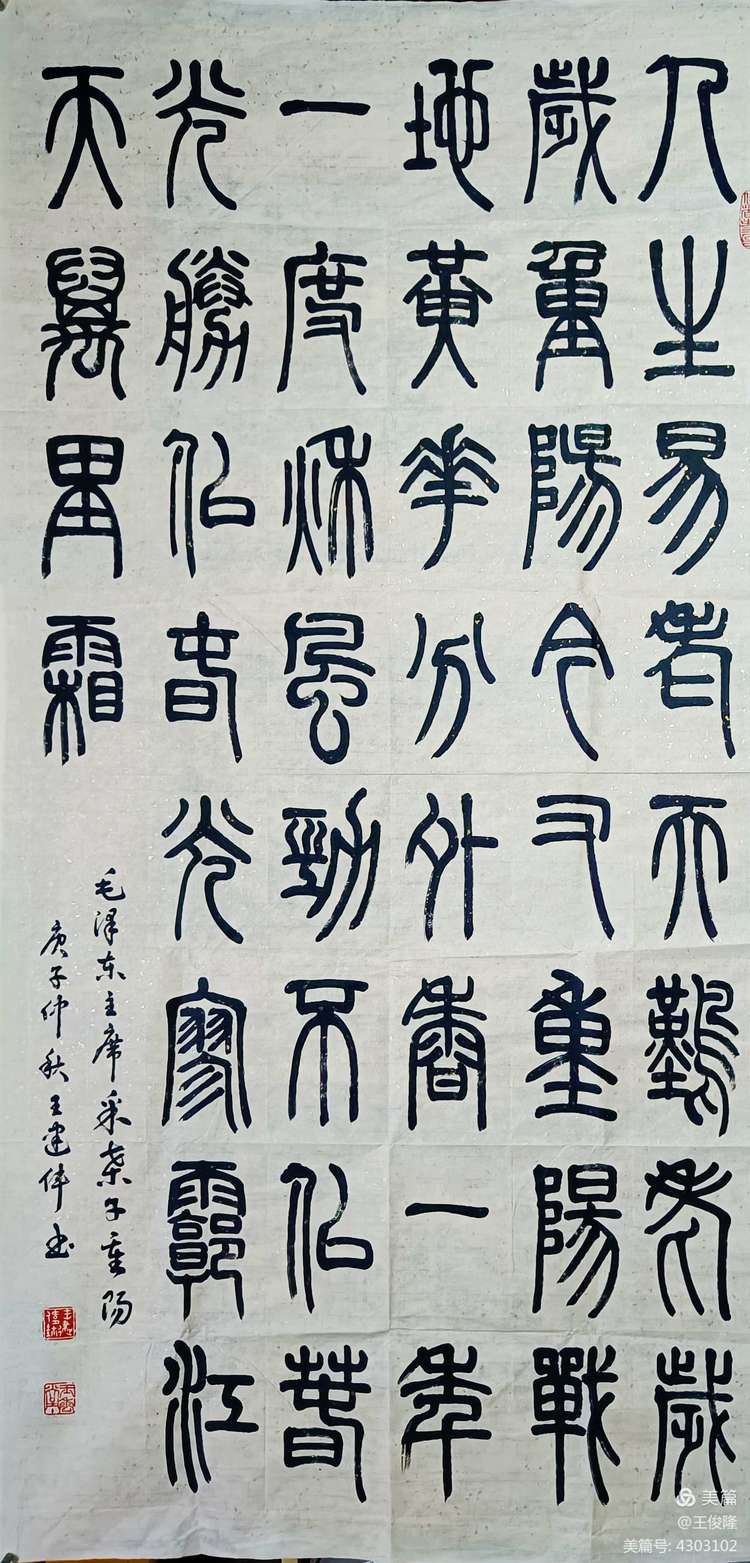 人生易老天難老歲
歲重陽今又重陽戰
地黃花分外香一年
一度秋風勁不似春
光勝似春光寥霩江
天萬里霜
毛泽东主席采桑子重阳
庚子仲秋王建伟书
美篇
@王俊隆
美篇号: 4303102